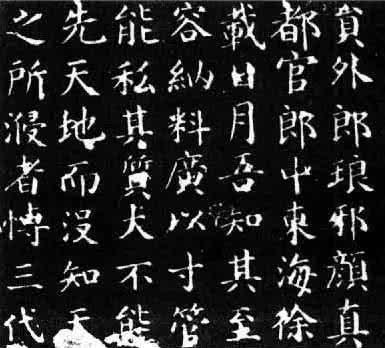 員外郎琅邪顏真
都官郎中東海徐
載日月吾知其至
容納料廣以寸管
能私其質犬不能
先天地而沒知天
之所浸者博三代